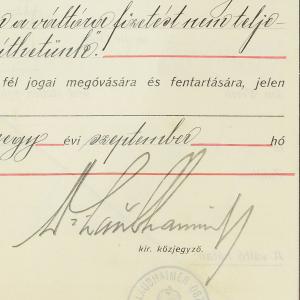 a váltóra fizetést nem telje-
síthetünk".
fél jogai megóvására és fentartására, jelen
négy évi szeptember hó
kir. közjegyző.
LAUBHEIMER